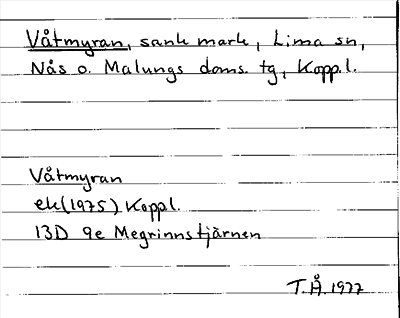 Våtmyran, sank mark, Lima sn,
Nås o. Malungs doms. tg, Kopp.l.
Våtmyran
ek(1975) Koppl.
13D 9e Megrinnstjärnen
T.Å.1977